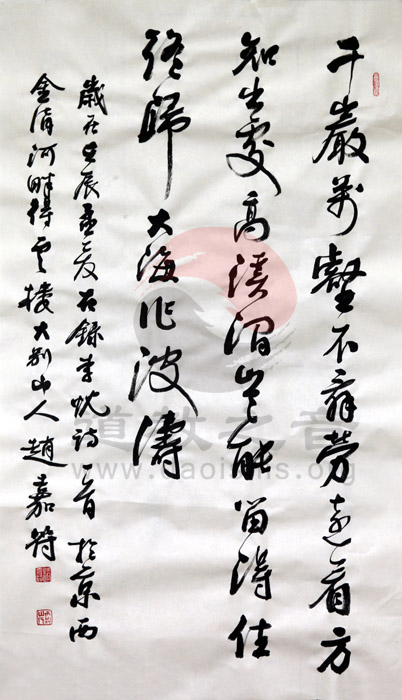 千巖萬壑不辭勞遠看方
知出處高溪澗豈能留得住
終歸大海作波濤
歲在壬辰孟夏右錄李忱詩一首於京西
金清河畔得雲樓大別山人趙嘉符
道教之音
www.daoisms.org